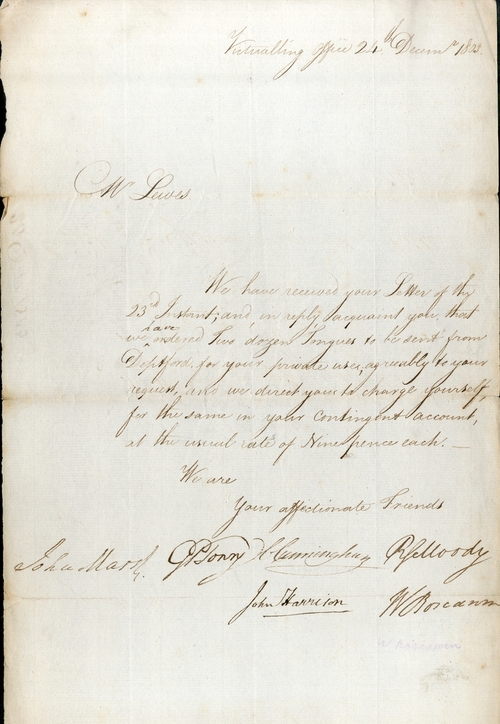 Victualling office 24th Decemr 1803.
Mr Lewes
We have received your Letter of the
23rd Instant; and in reply, acquaint you, that
have
we ordered Two dozen Tongues to be sent from
Deptford, for your private use, agreeably to your
request, and we direct you to charge yourself,
for the same in your Contingent account,
at the usual rate of Nine pence each.
We are
Your affectionate Friends
John Marsh GPTowry Cunningham RSMoody
John Harrison WBoscawen